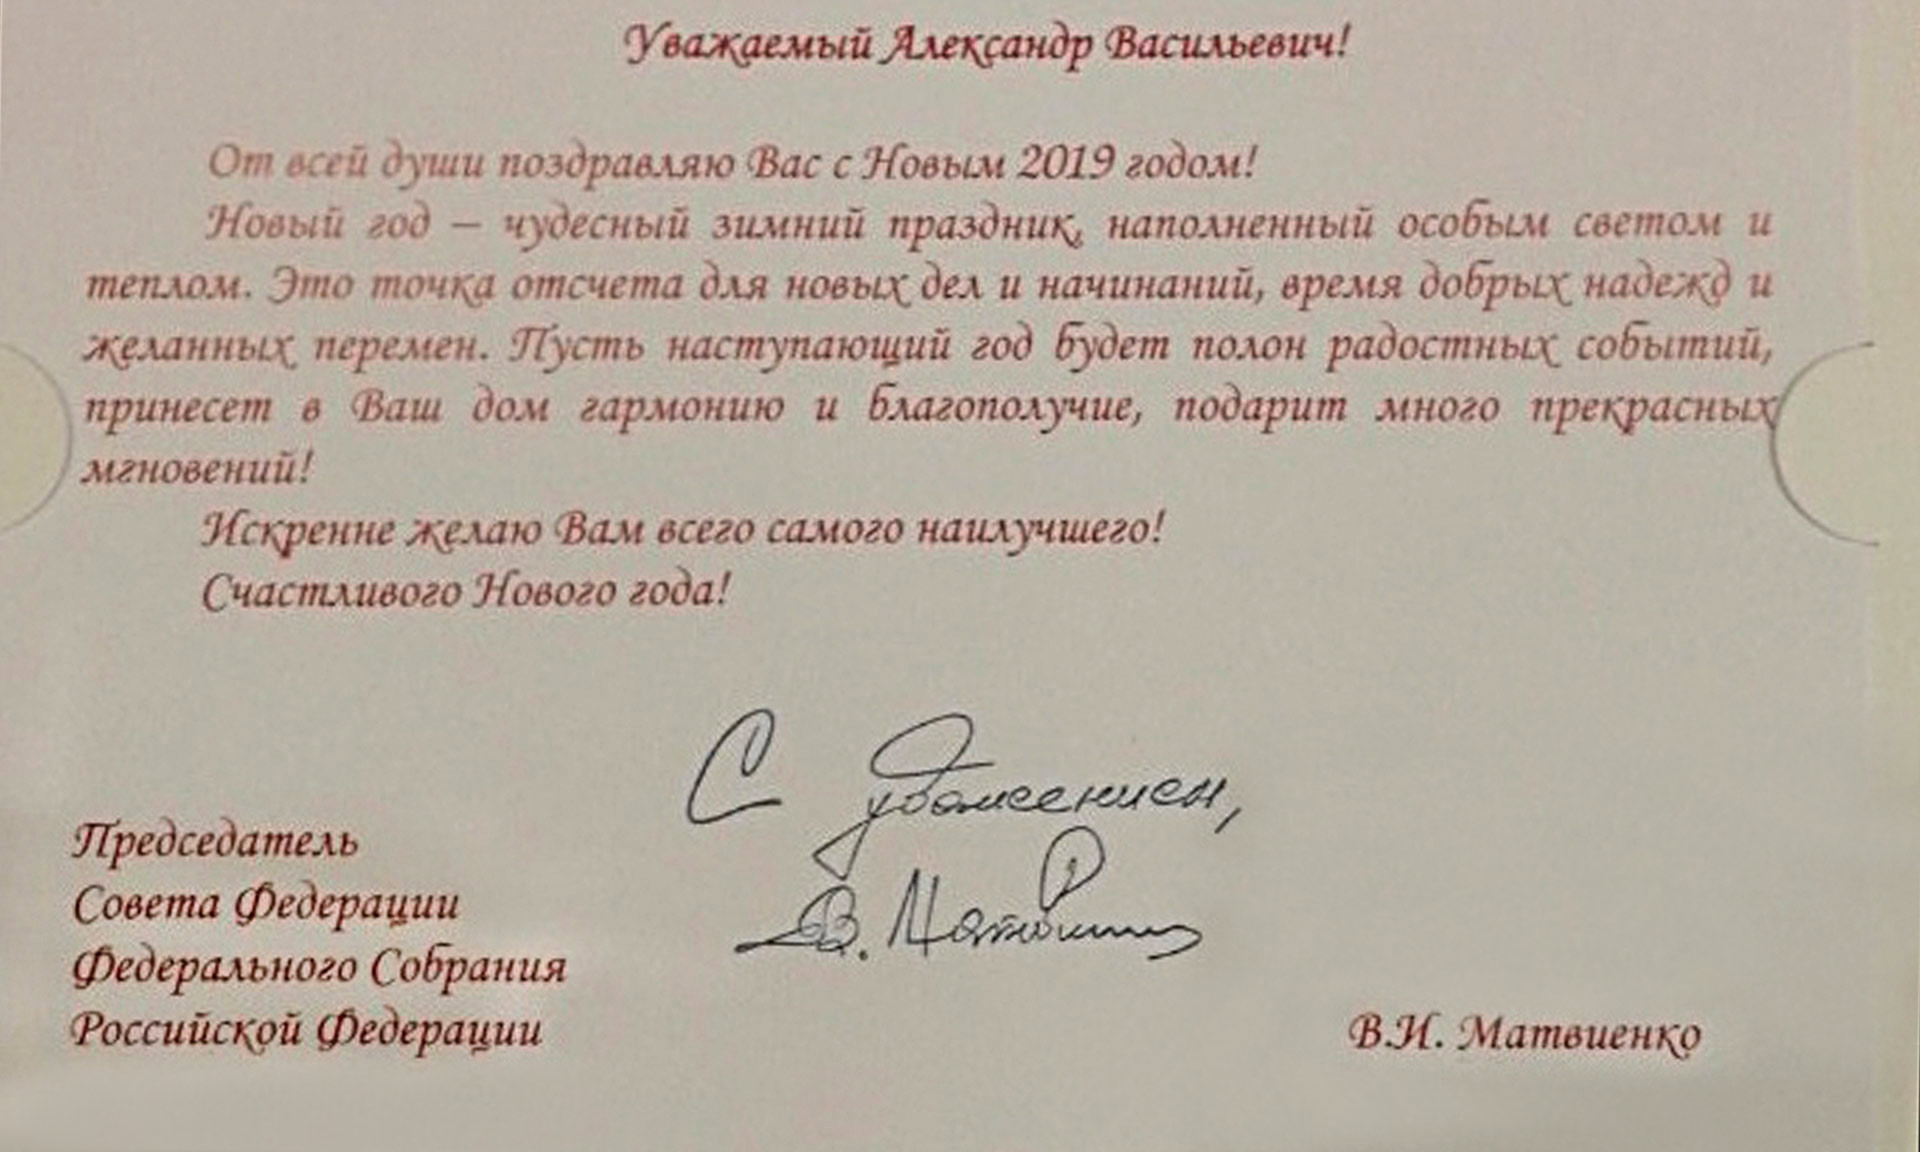 Уважаемый Александр Васильевич!
От всей души поздравляю Вас с Новым 2019 годом!
Новый год – чудесный зимний праздник, наполненный особым светом и
теплом. Это точка отсчета для новых дел и начинаний, время добрых надежд и
желанных перемен. Пусть наступающий год будет полон радостных событий,
принесет в Ваш дом гармонию и благополучие, подарит много прекрасных
мгновений!
Искренне желаю Вам всего самого наилучшего!
Счастливого Нового года!
С уважением,
В. Матвиенко
Председатель
Совета Федерации
Федерального Собрания
Российской Федерации
В.И. Матвиенко